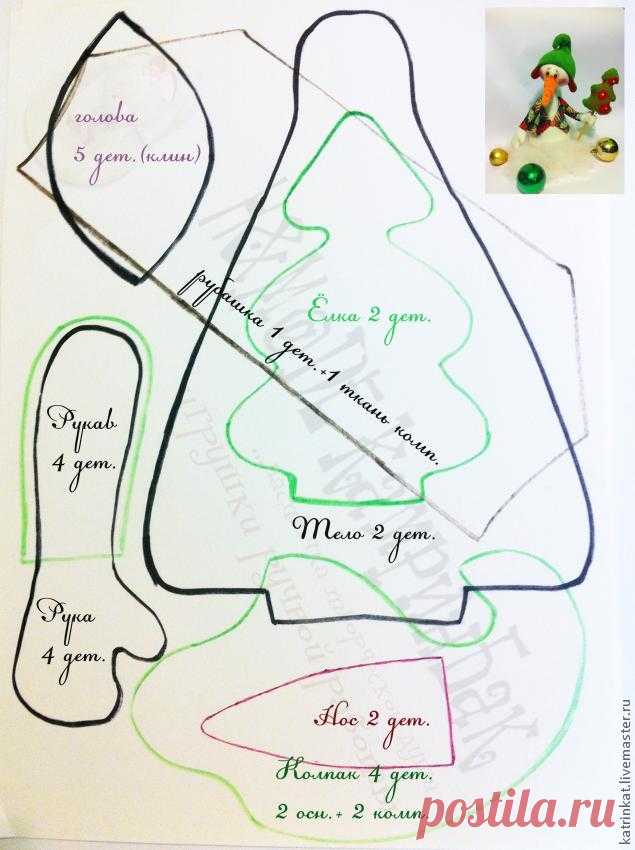 голова
5 дет. (клин)
рубашка 1 дет.+1 ткань комп.
Ёлка 2 дет.
Рукав
4 дет.
Тело 2 дет.
Рука
4 дет.
Нос 2 дет.
Колпак 4 дет.
2 осн.+ 2 комп.
postila.ru
katrinkat.livemaster.ru